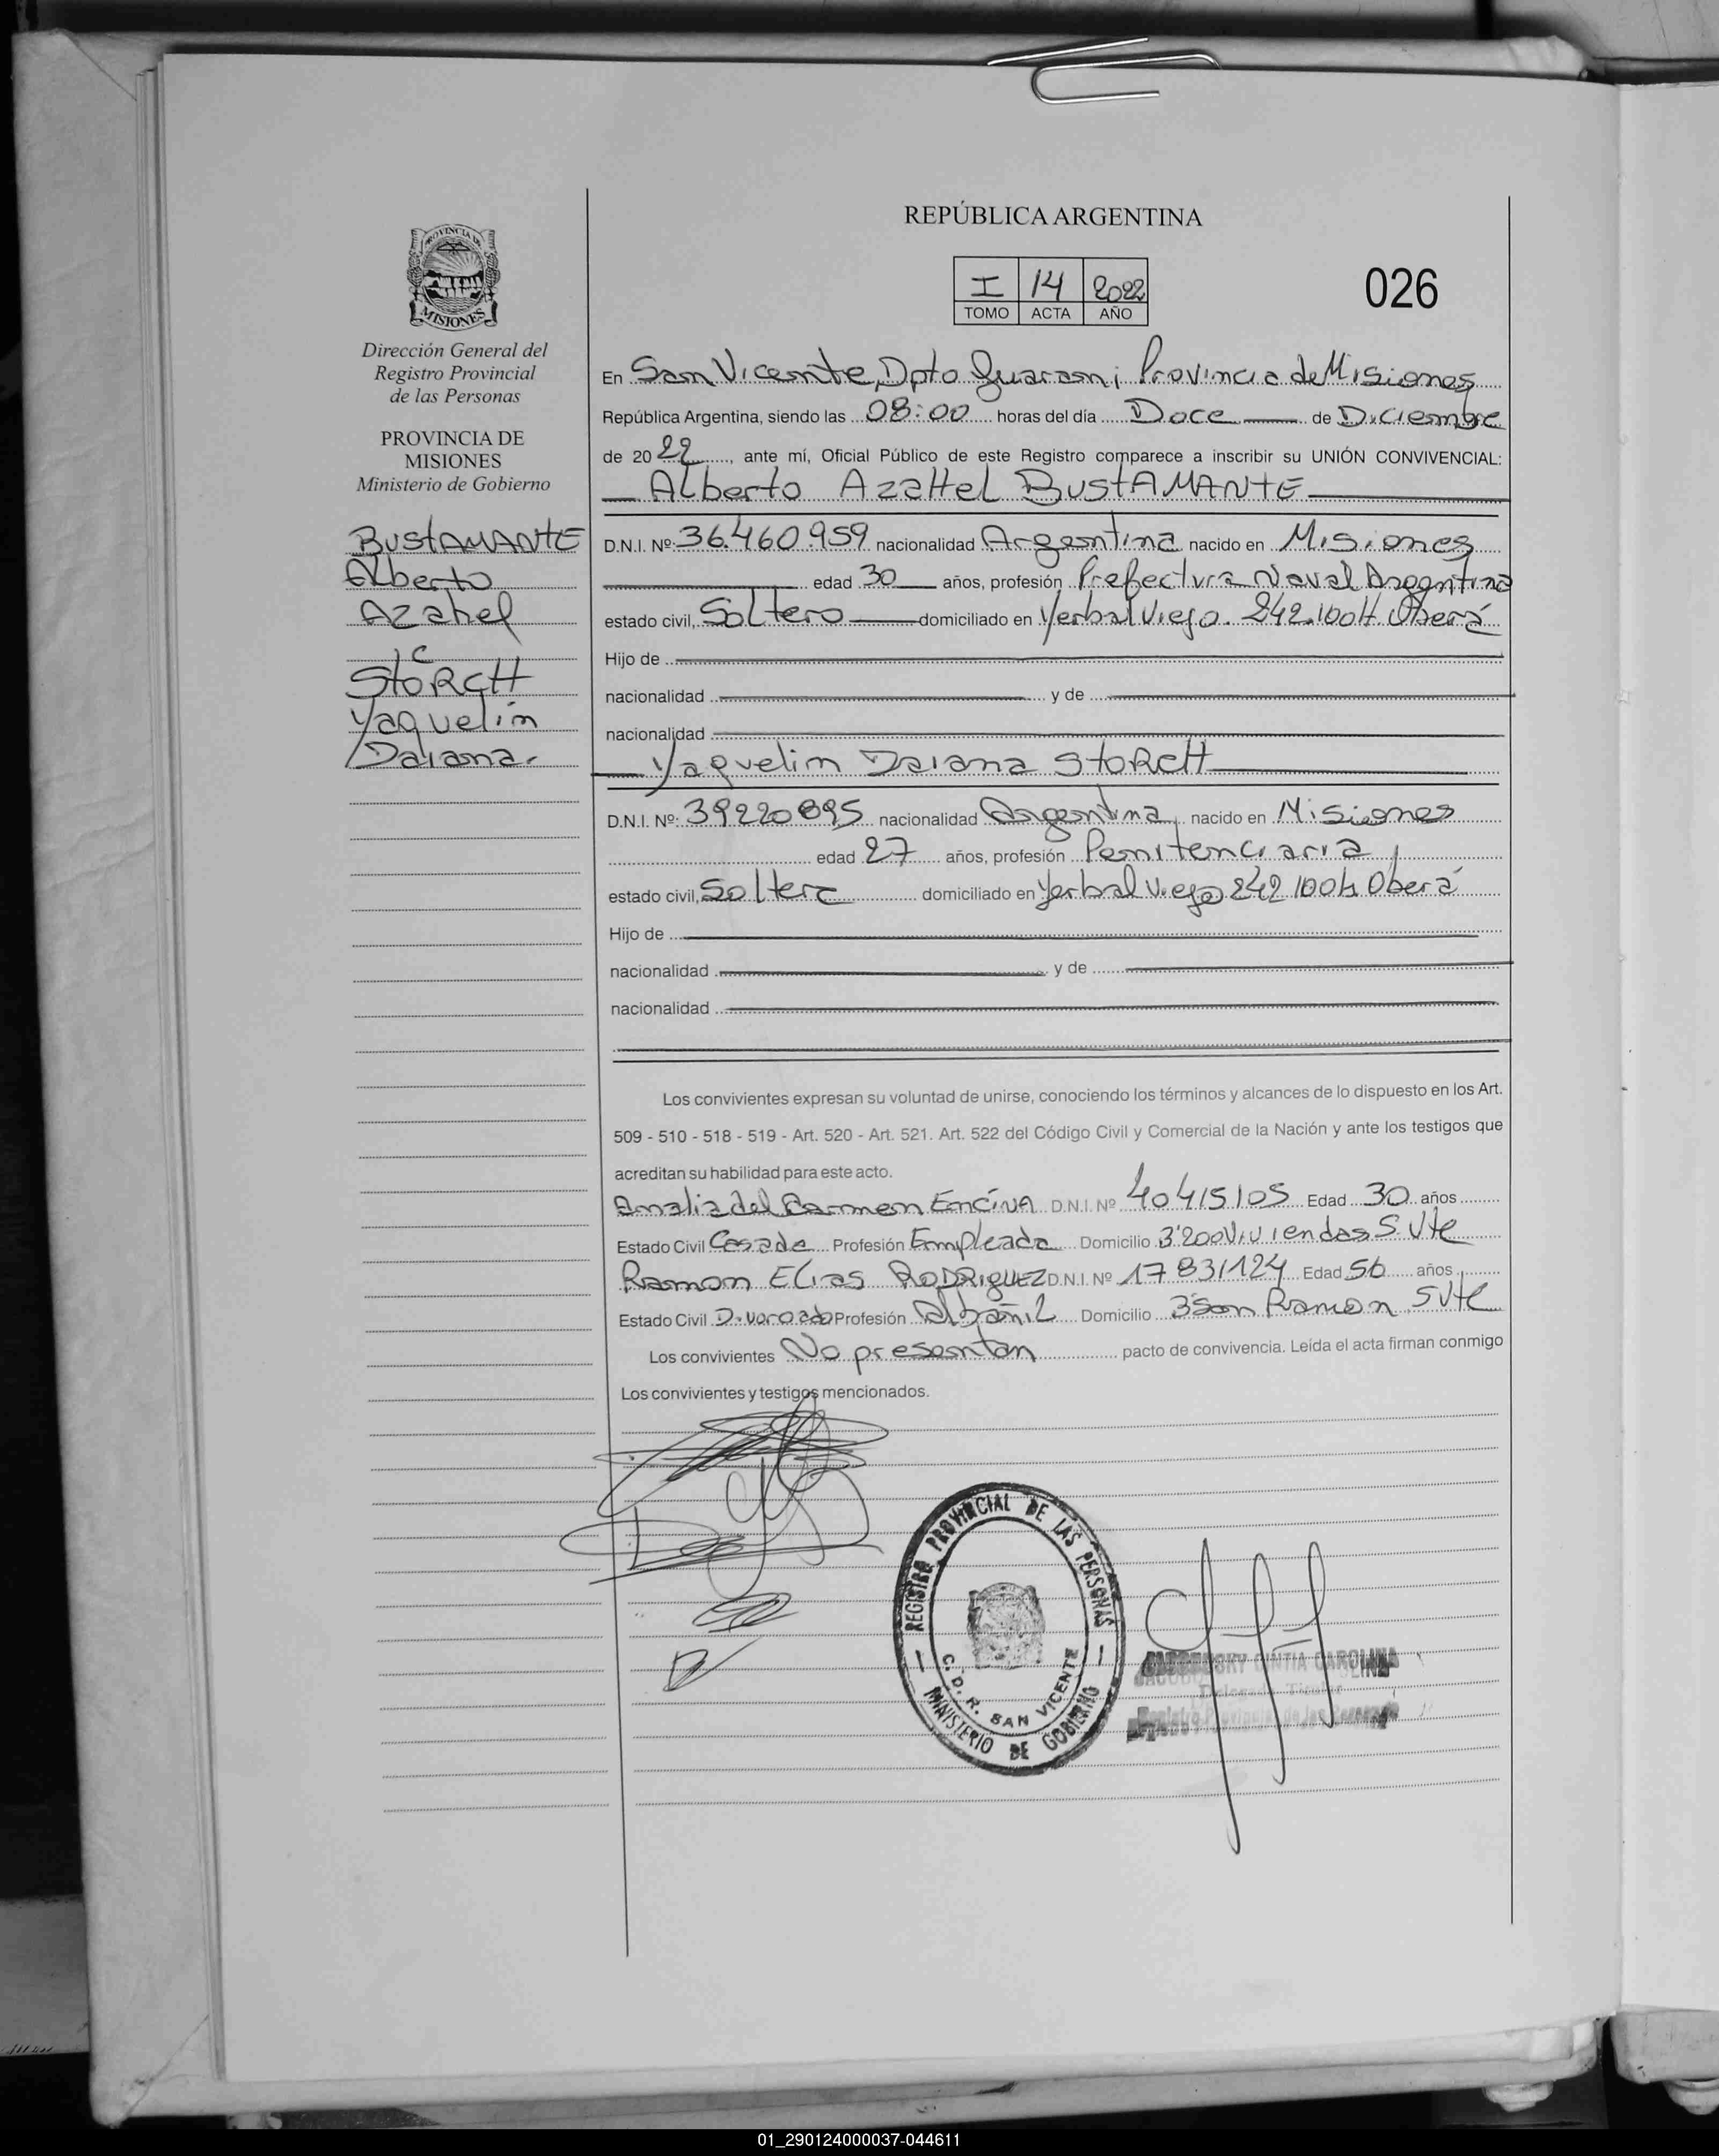 PROVINCIA DE
MISIONES
Dirección General del
Registro Provincial
de las Personas
PROVINCIA DE
MISIONES
Ministerio de Gobierno
BUSTAMANTE
Alberto
Azahel
c
STORCH
Yaquelin
Daiana.
REPÚBLICA ARGENTINA
I 14 2022
TOMO ACTA AÑO
026
En San Vicente, Dpto Guarani Provincia de Misiones
República Argentina, siendo las 08:00 horas del día Doce de Diciembre
de 2022, ante mí, Oficial Público de este Registro comparece a inscribir su UNIÓN CONVIVENCIAL:
Alberto AzaHel BUSTAMANTE
D.N.I. Nº 36.460.959 nacionalidad Argentina nacido en Misiones
edad 30 años, profesión Prefectura Naval Argentina
estado civil, Soltero domiciliado en Yerbal Viejo. 242.100H. Oberá
Hijo de
nacionalidad y de
nacionalidad
Yaquelin Daiana STORCH
D.N.I. Nº: 39220895 nacionalidad Argentina, nacido en Misiones
edad 27 años, profesión Penitenciaria
estado civil, Soltera domiciliado en Yerbal Viejo 242 100h Oberá
Hijo de
nacionalidad y de
nacionalidad
Los convivientes expresan su voluntad de unirse, conociendo los términos y alcances de lo dispuesto en los Art.
509 - 510 - 518 - 519 - Art. 520 - Art. 521. Art. 522 del Código Civil y Comercial de la Nación y ante los testigos que
acreditan su habilidad para este acto.
Amalia del Carmen Encína D.N.I. Nº 40415105 Edad 30 años
Estado Civil Casada Profesión Empleada Domicilio Bº200Viviendas S. Vte
Ramon Elias RODRIGUEZ D.N.I. Nº 17831124 Edad 56 años
Estado Civil Divorcado Profesión Albañil Domicilio BºSan Ramon S Vte
Los convivientes No presentan pacto de convivencia. Leída el acta firman conmigo
Los convivientes y testigos mencionados.
REGISTRO PROVINCIAL DE LAS PERSONAS
C. D. R. SAN VICENTE
MINISTERIO DE GOBIERNO
CINTIA CAROLINA
Delegada Titular
Registro Provincial de las Personas
01_290124000037-044611